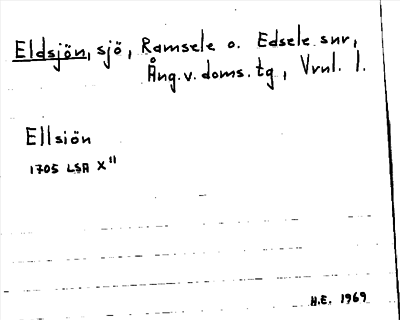 Eldsjön, sjö, Ramsele o. Edsele snr,
Ång.v.doms.tg, Vrnl. l.
Ellsiön
1705 LSA X"
H.E. 1969